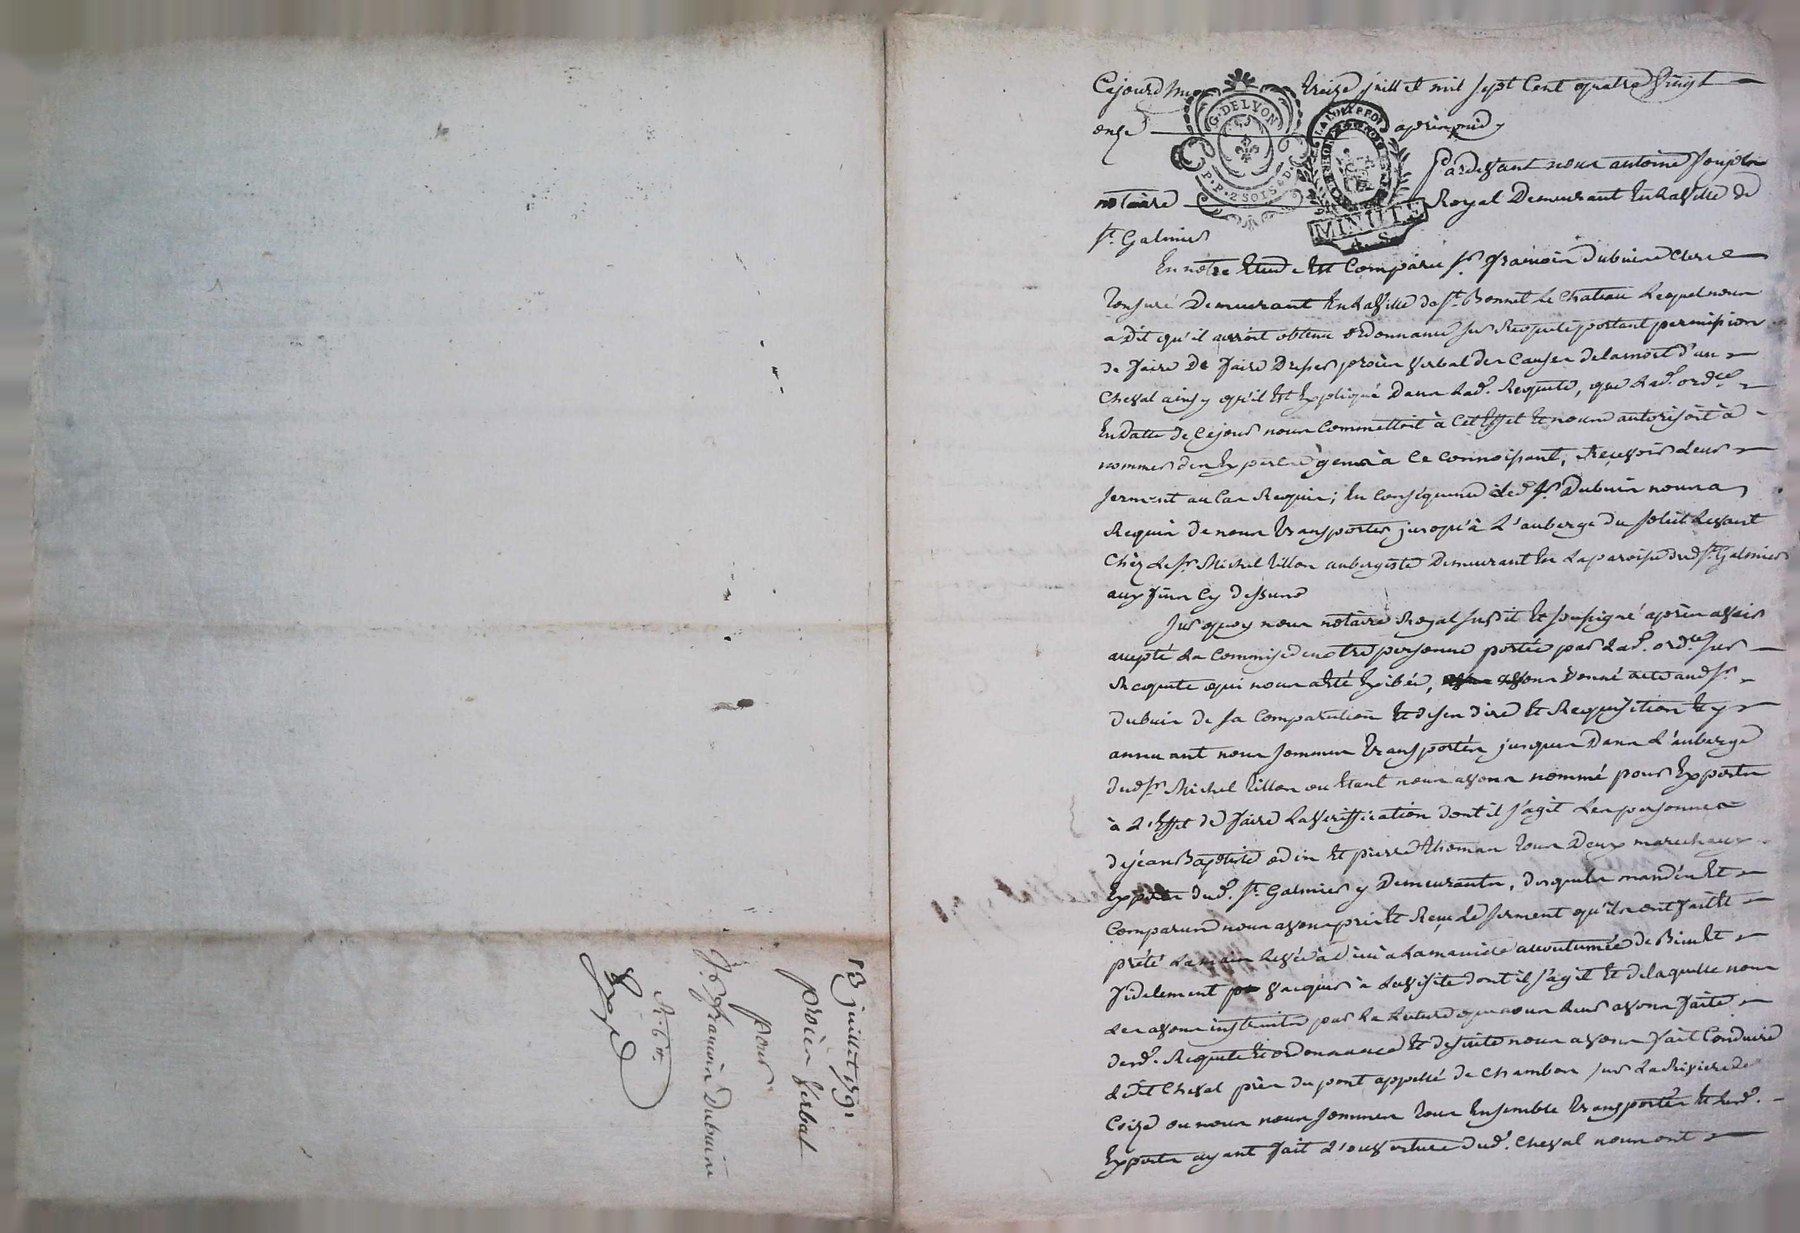 13 juillet 1791
procès verbal
pour
Sr françois Dubuin
R. 6 ..
Cejourd'huy treize juillet mil sept Cent quatre Vingt
onze après midy
G. DE LYON
P.P. 2 SOLS 8 D.
LA LOI ET LE ROI
MINUTE
4. S.
Pardevant nous antoine
notaire Royal Demeurant En La Ville de
st. Galmier
En nôtre Etude Est Comparu sr. françois Dubuin Clerc
tonsuré Demeurant En La Ville de st. Bonnet le Chateau Lequel nous
a Dit qu'il auroit obtenu ordonnance sur Requete portant permission
de faire De faire Dresser procès verbal des Causes de la mort d'un
Cheval ainsy qu'il Est Expliqué Dans Lad. Requete, que Lad. ordce
En Datte de Cejour nous Commettoit à Cet Effet Et nous autorisoit à
nommer des Experts gens à Ce Connoissant, Recevoir Leur
serment au Cas Requis; En Conséquence Led. sr Dubuin nous a
Requis de nous transporter jusqu'à L'auberge du soleil Levant
Chez Le sr. Michel Villon aubergiste Demeurant En La paroisse dud. st. Galmier
aux fins Cy dessus
Sur quoy nous notaire Royal susdit Et soussigné après avoir
accepté La Commise de notre personne portée par Lad. ordce sur
Requete qui nous a été Exibée, avons Donné acte aud. sr
Dubuin de sa Comparution Et de son dire Et Requisition Et y
annuant nous sommes transportés jusques Dans L'auberge
dud. sr. Michel Villon ou Etant nous avons nommé pour Experts
à L'Effet de faire La Veriffication dont il s'agit Les personnes
de jean Baptiste odin Et pierre thomas tous Deux marechaux
Experts dud. st. Galmier y Demeurants, desquels mandés Et
Comparus nous avons pris Et Reçu Le serment qu'ils ont fait Et
prêté La main Levée à dieu à La maniere accoutumée de Bien Et
fidelement vacquer à La visite dont il s'agit Et de laquelle nous
Les avons instruits par La Lecture que nous Leur avons faite
desd. Requete Et ordonnance Et de suite nous avons fait Conduire
Ledit Cheval près du pont appellé de Chambon sur La Riviere de
Coize ou nous nous sommes tous Ensemble transportés Et Lesd.
Experts ayant fait L'ouverture dud. Cheval nous ont